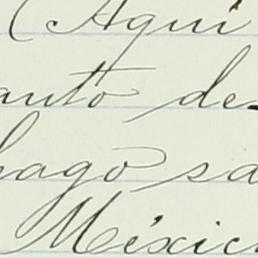 (Aquí
anto de-
hago sa
Méxic